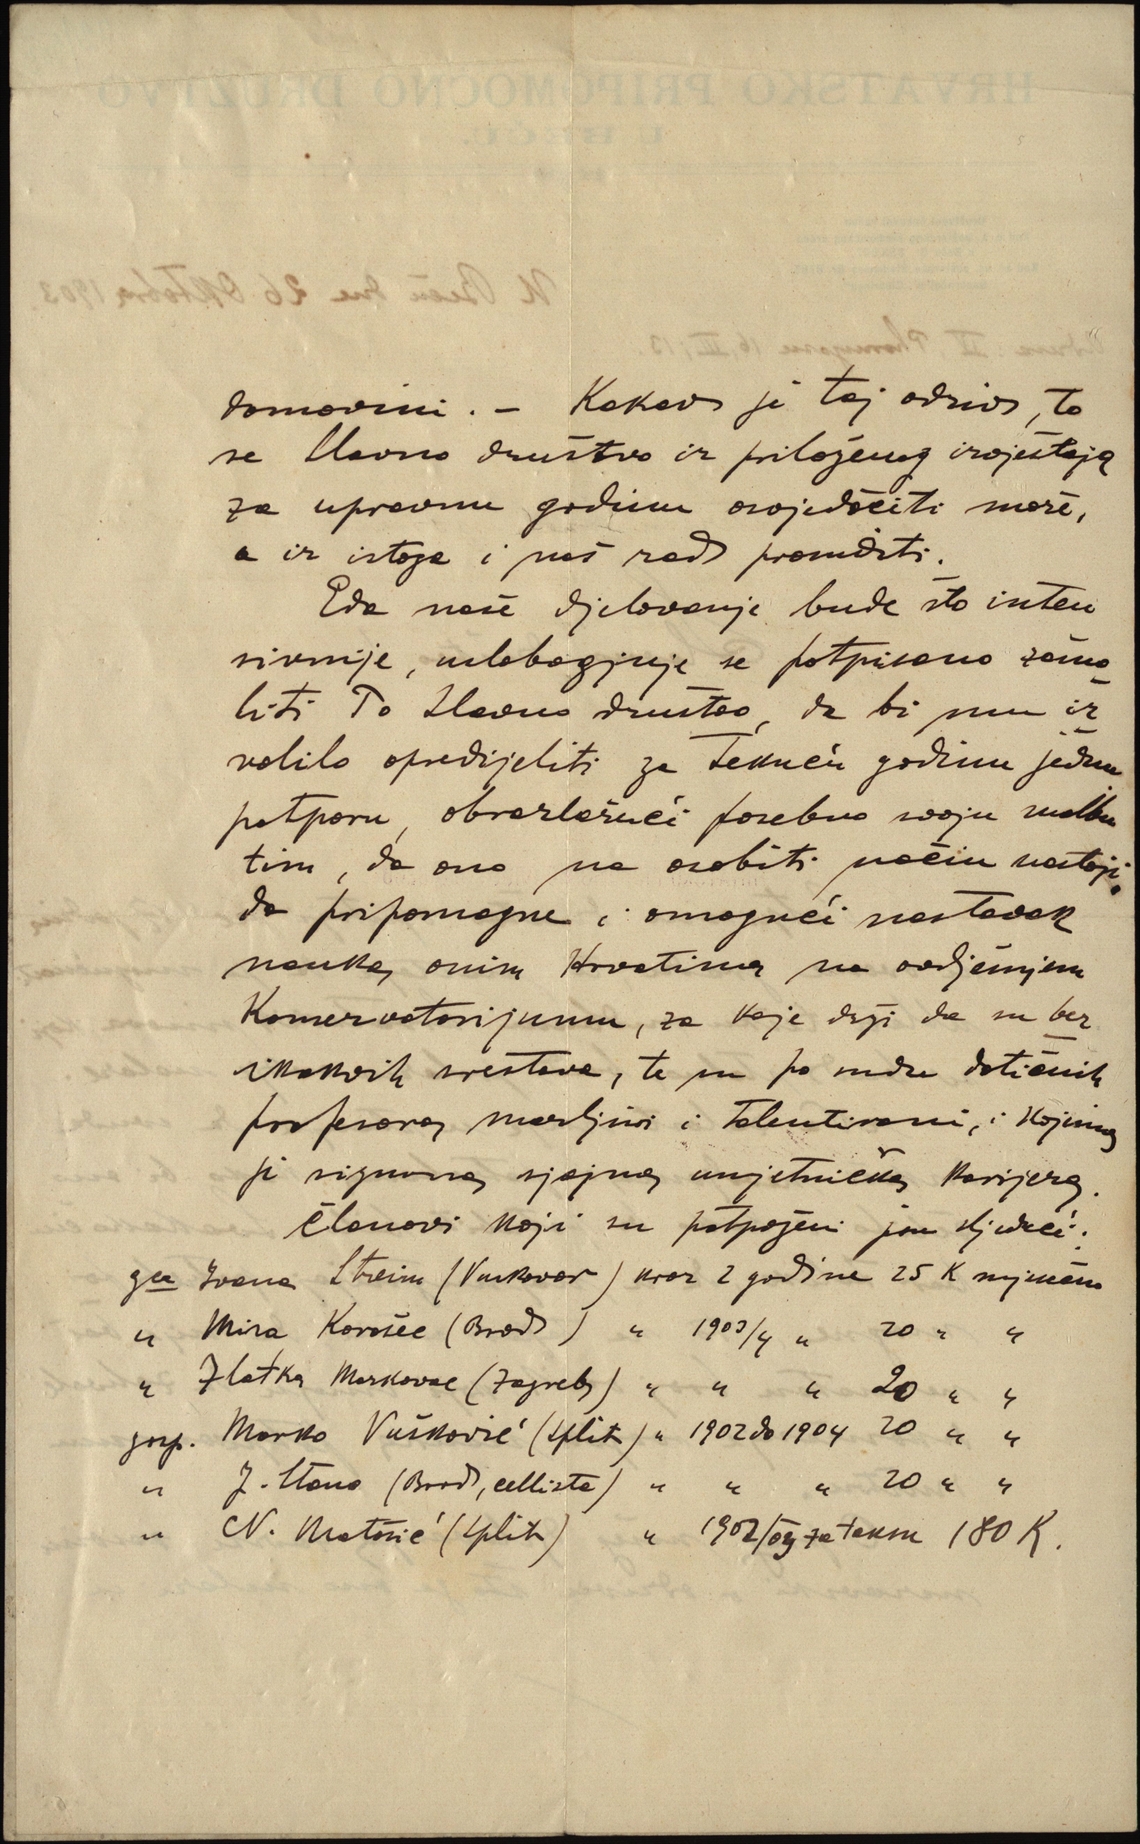 domovini. – Kakav je taj odziv, to
se Slavno društvo iz priloženog izvještaja
za upravnu godinu osvjedočiti može,
a iz istoga i naš rad prosuditi.
Eda naše djelovanje bude što inten
sivnije, uslobagjuje se potpisano zamo
liti To Slavno društvo, da bi mu iz
volilo opredijeliti za tekuću godinu jednu
potporu, obrazlažući posebno svoju molbu
tim, da ono na osobiti način nastoji
da pripomogne i omogući nastavak
nauka onim Hrvatima na ovdješnjem
Konservatorijumu, za koje drži da su bez
ikakvih srestava, te su po sudu dotičnih
profesora marljivi i talentirani, i kojima
je sigurna sjajna umjetnička karijera.
Članovi koji su potpoženi jesu sljedeći:
gca Ivana Stroim (Vukovar) kroz 2 godine 25 K mjesečno
" Mira Korošec (Brod) " 1903/4 " 20 " "
" Zlatka Markovac (Zagreb) " " " 20 " "
gosp. Marko Vušković (Split) " 1902 do 1904 20 " "
" J. Stano (Brod, cellista) " " " 20 " "
" N. Matošić (Split) " 1902/03 za taksu 180 K.